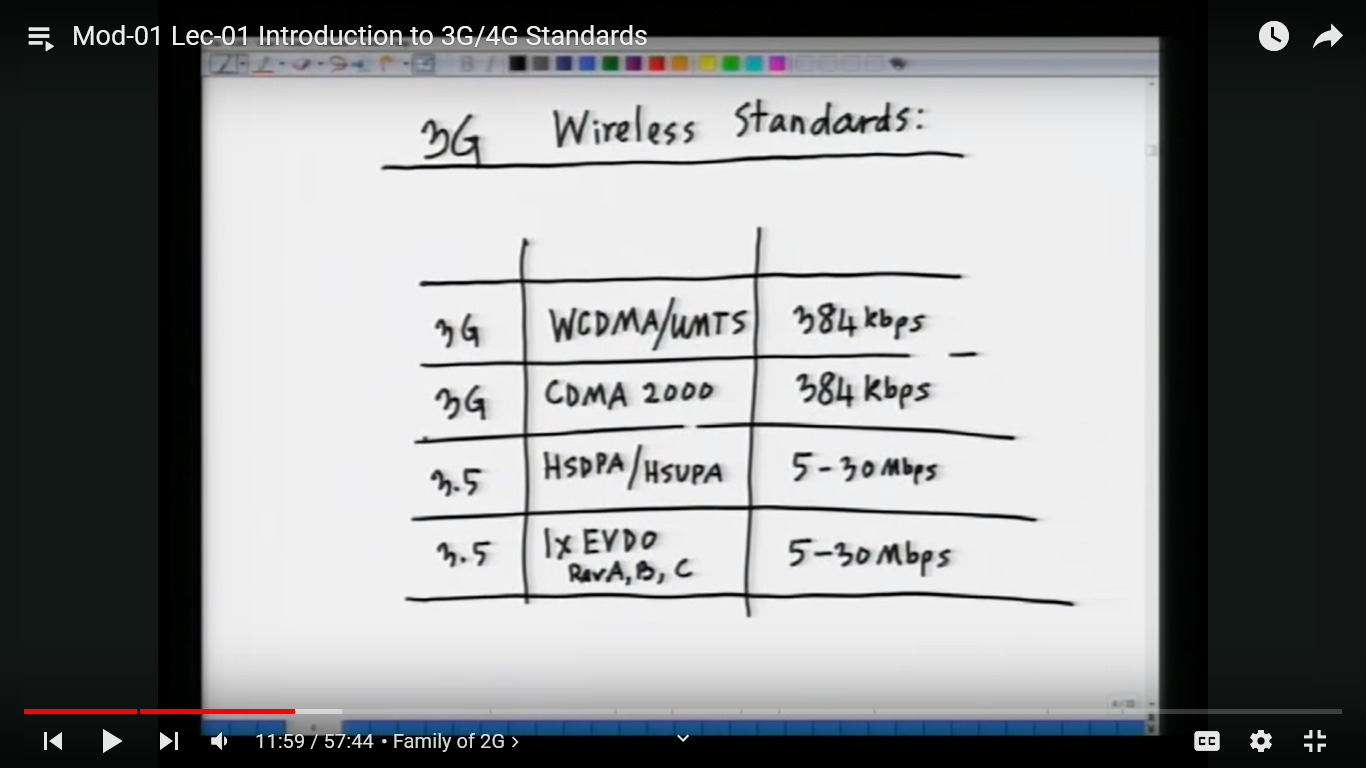 Mod-01 Lec-01 Introduction to 3G/4G Standards
3G Wireless Standards:
3G WCDMA/UMTS 384 kbps
3G CDMA 2000 384 kbps
3.5 HSDPA/HSUPA 5-30 Mbps
3.5 1x EVDO 5-30 Mbps
Rev A, B, C
11:59 / 57:44 • Family of 2G ›
CC